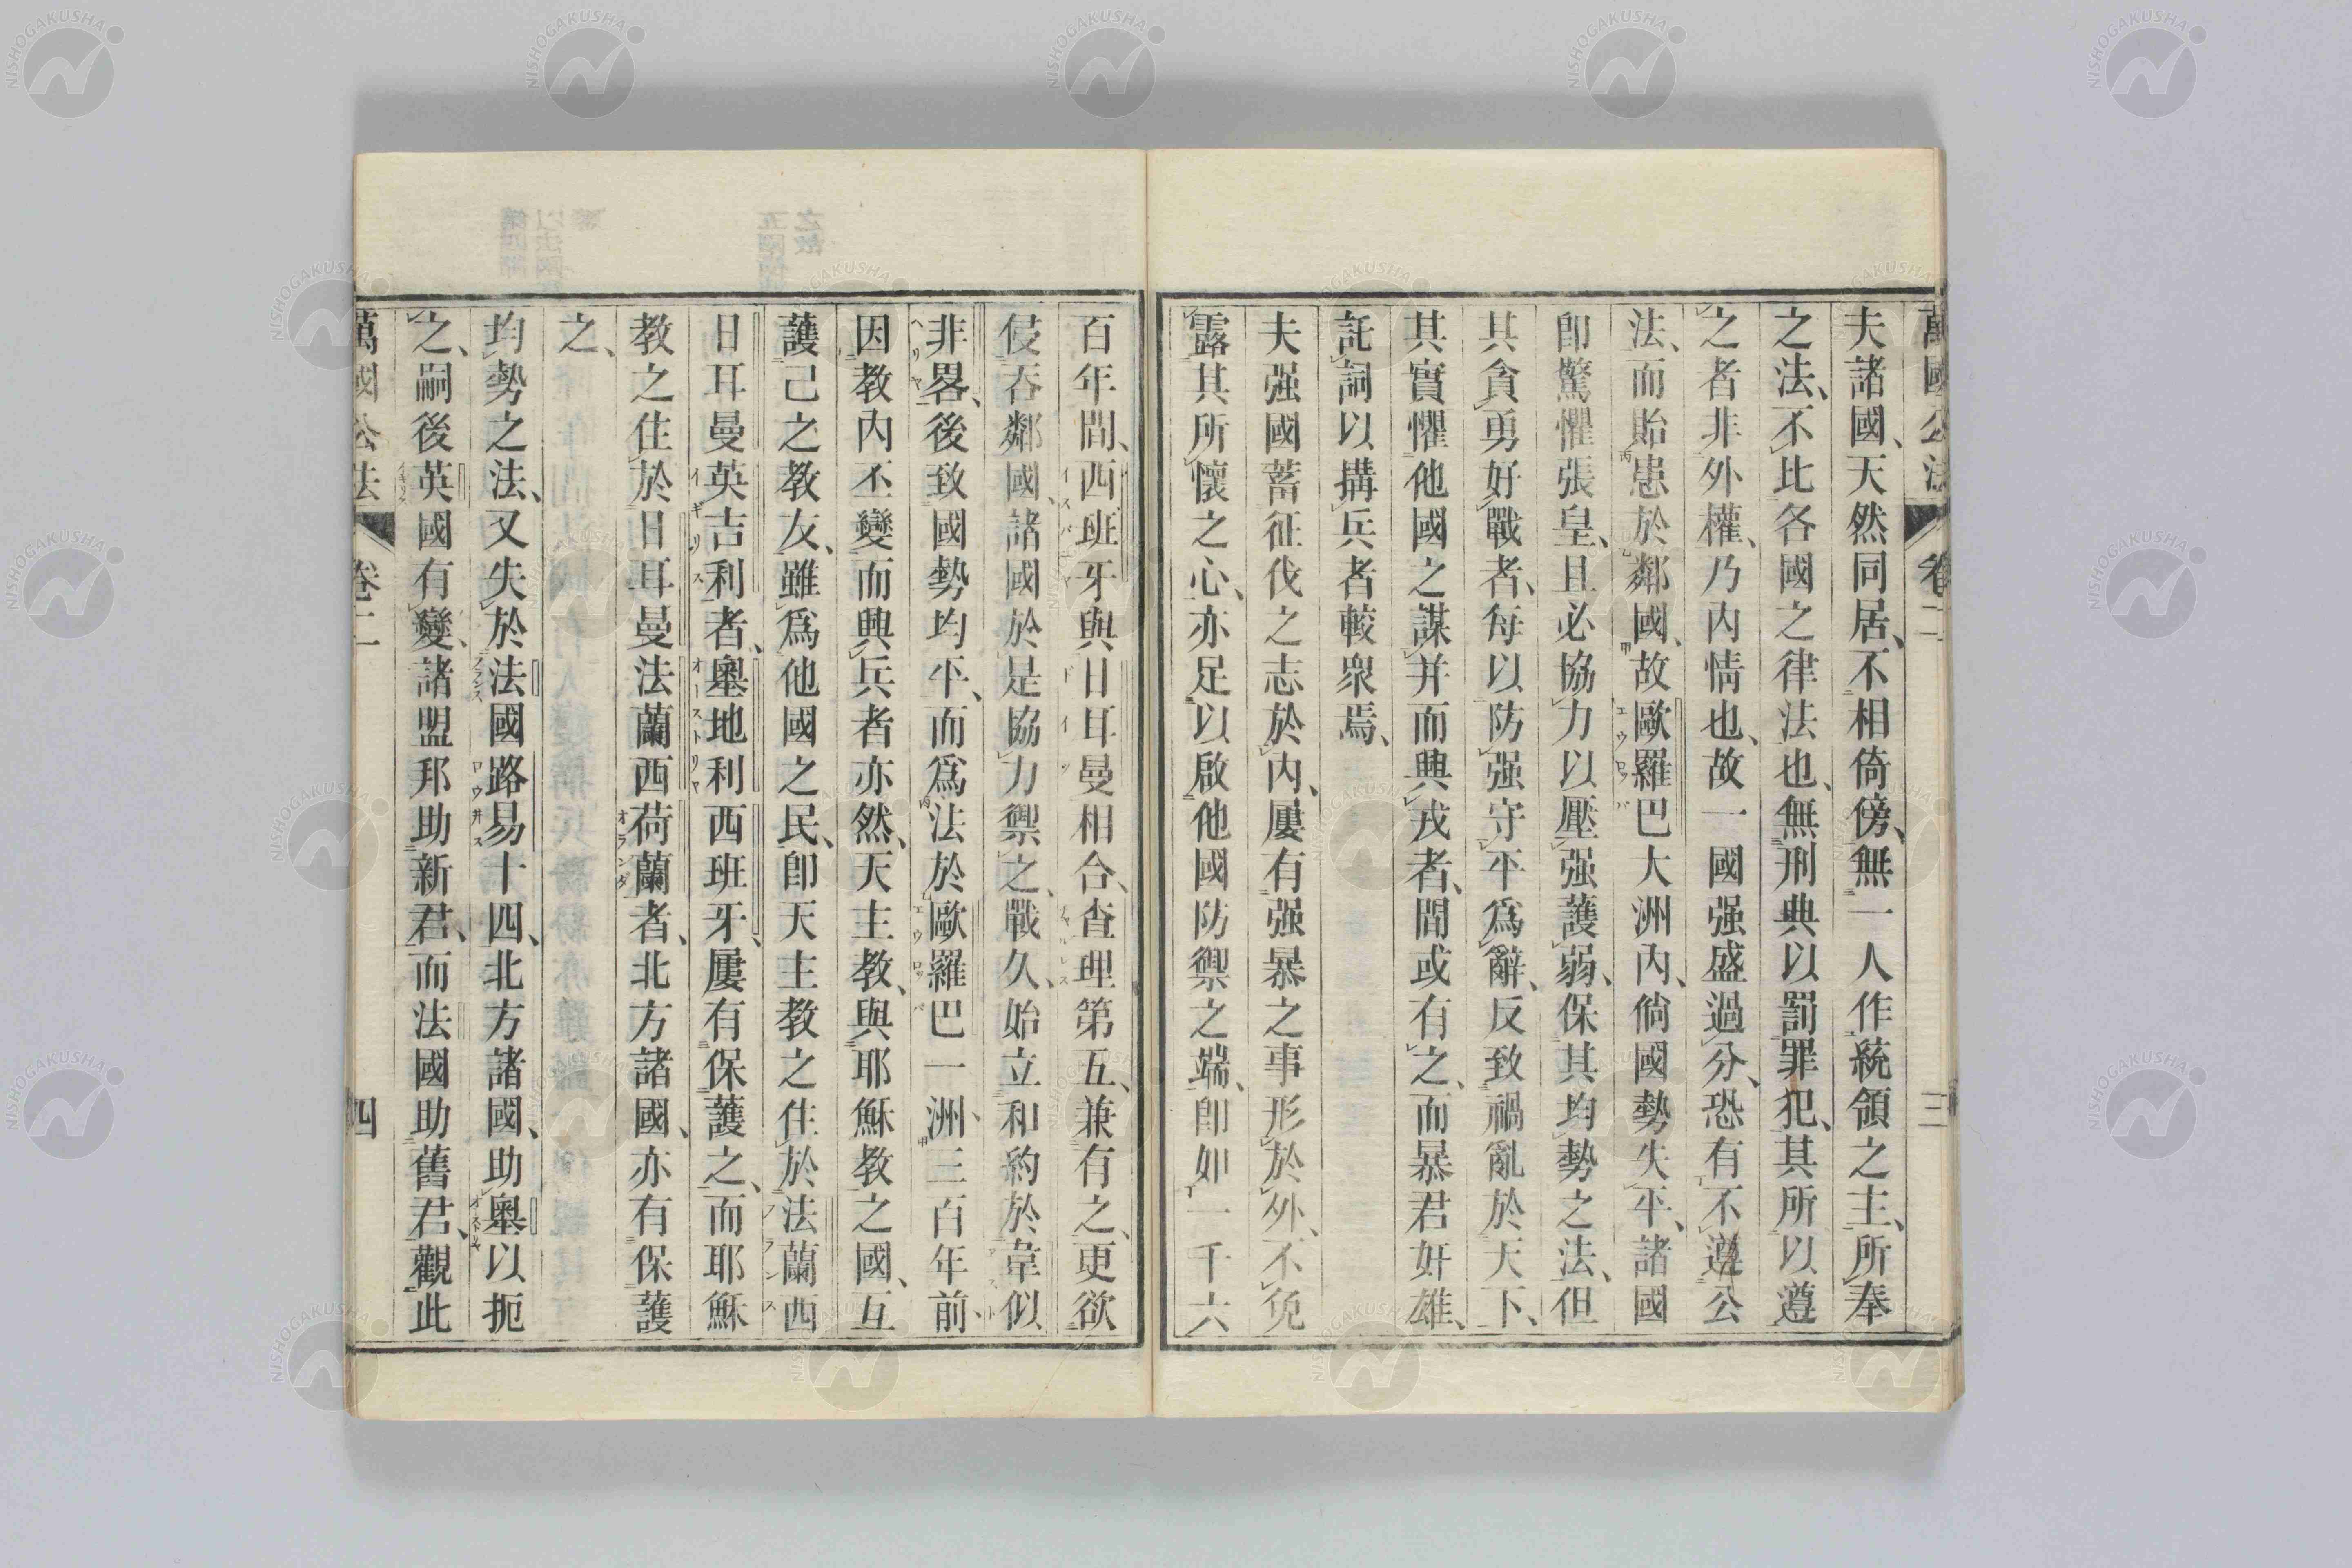 萬國公法 卷二 三
夫諸國、天然同居、不相倚傍、無一人作統領之主、所奉
之法、不比各國之律法也、無刑典以罰罪犯、其所以遵
之者非外權、乃內情也、故一國强盛過分、恐有不遵公
法、而貽患於鄰國、故歐羅巴大洲內、倘國勢失平、諸國
卽驚懼張皇、且必協力以壓强護弱、保其均勢之法、但
其貪勇好戰者、每以防强守平爲辭、反致禍亂於天下、
其實懼他國之謀并而興戎者、間或有之、而暴君奸雄、
託詞以搆兵者較衆焉、
夫强國蓄征伐之志於內、屢有强暴之事形於外、不免
露其所懷之心、亦足以啟他國防禦之端、卽如一千六
百年間、西班牙與日耳曼相合、查理第五、兼有之、更欲
侵吞鄰國、諸國於是協力禦之、戰久、始立和約於韋似
非畧、後致國勢均平、而爲法於歐羅巴一洲、三百年前、
因教內丕變而興兵者亦然、天主教、與耶穌教之國、互
護己之教友、雖爲他國之民、卽天主教之住於法蘭西
日耳曼英吉利者、奧地利西班牙、屢有保護之、而耶穌
教之住於日耳曼法蘭西荷蘭者、北方諸國、亦有保護
之、
均勢之法、又失於法國路易十四、北方諸國、助奧以扼
之、嗣後英國有變、諸盟邦助新君、而法國助舊君、觀此
萬國公法 卷二 四
NISHOGAKUSHA